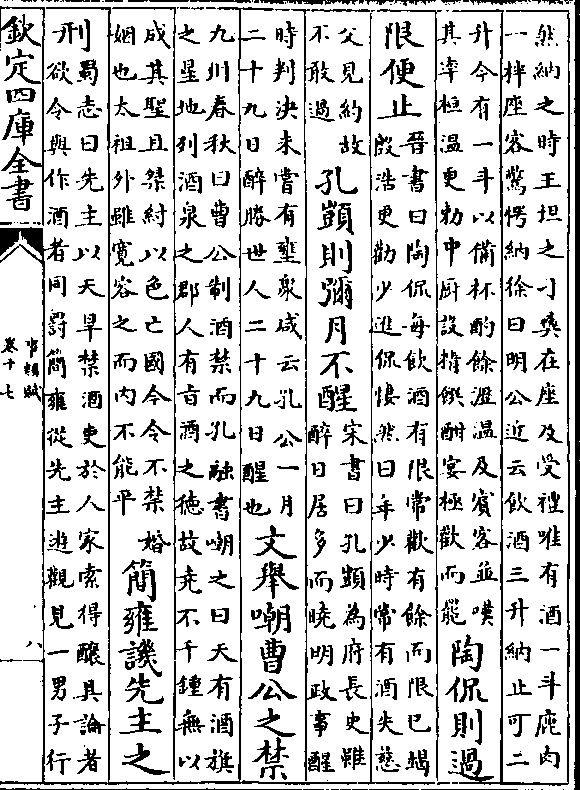 然納之時王坦之刁彝在座及受禮唯有酒一斗鹿肉
一柈座客驚愕納徐曰明公近云飲酒三升納止可二
升今有一斗以備杯酌餘瀝溫及賓客並嘆
其率桓溫更勅中厨設精饌酣宴極歡而罷
陶侃則過
限便止
晉書曰陶侃每飲酒有限常歡有餘而限已竭
殷浩更勸少進侃悽然曰年少時常有酒失慈
父見約故
不敢過
孔顗則彌月不醒
宋書曰孔顗為府長史雖
醉日居多而曉明政事醒
時判決未嘗有壅衆咸云孔公一月
二十九日醉勝世人二十九日醒也
文舉嘲曹公之禁
九州春秋曰曹公制酒禁而孔融書嘲之曰天有酒旗
之星地列酒泉之郡人有旨酒之德故堯不千鍾無以
成其聖且桀紂以色亡國今令不禁婚
姻也太祖外雖寬容之而内不能平
簡雍譏先主之
刑
蜀志曰先主以天旱禁酒吏於人家索得釀具論者
欲令與作酒者同罰簡雍從先主遊觀見一男子行
欽定四庫全書
事類賦
卷十七
八